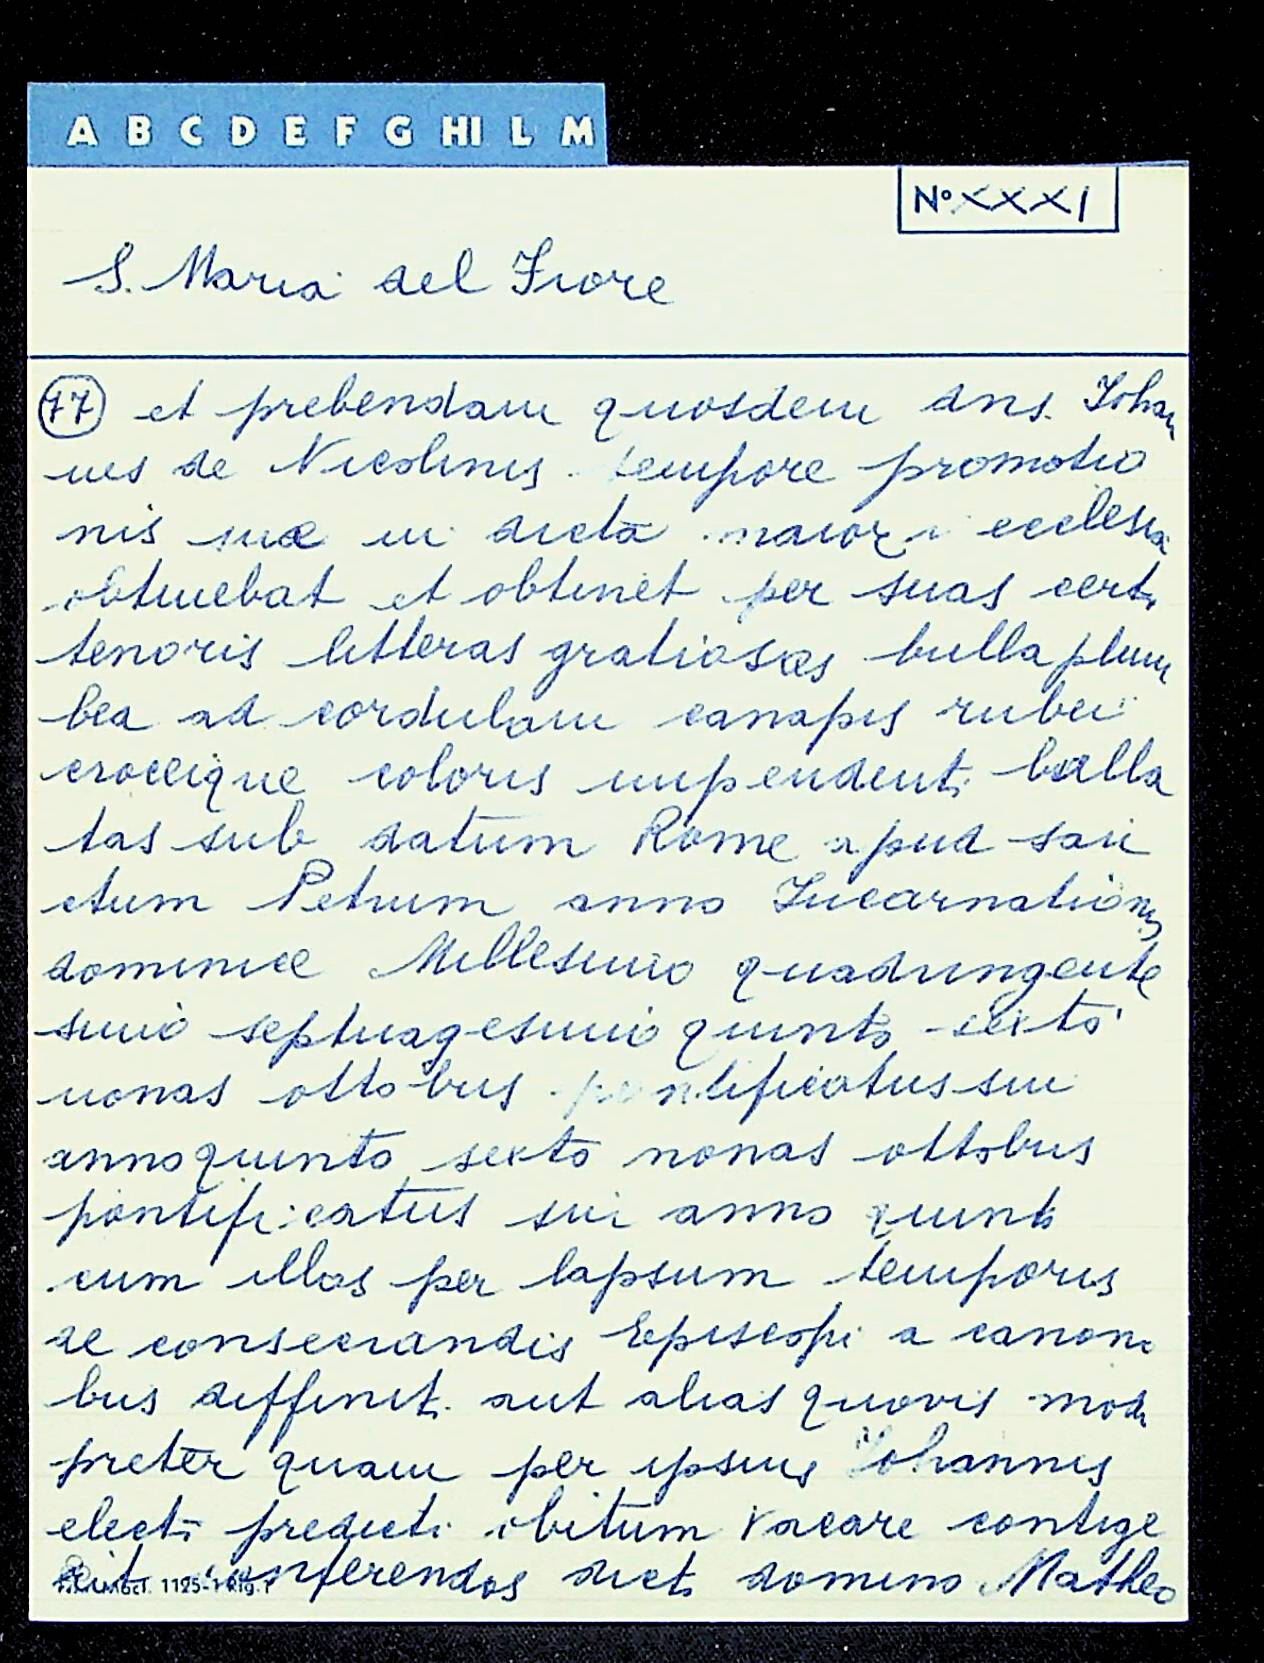 A B C D E F G HI L M
N° XXXI
S. Maria del Fiore
77 et prebendam quosdem dns. Johan
nes de Nicolinis tempore promotio
nis suæ in dictā maiori ecclesia
obtinebat et obtinet per suas cert.
tenoris litteras gratiosas bulla plum
bea ad cordulam canapis rubei
croceique coloris impendent. bulla
tas sub datum Rome apud san
ctum Petrum anno Incarnationis
dominice Millesimo quadringente
simo septuagesimo quinto sexto
nonas ottobris pontificatus sui
anno quinto sexto nonas ottobris
pontificatus sui anno quinto
cum illas per lapsum temporis
de consecrandis Episcopi a canoni
bus diffinit. aut alias quovis modo
preter quam per ipsius Johannis
electi predicti obitum vacare contige
rit conferendos dict. domino Matheo
1125-1 Rig. 1